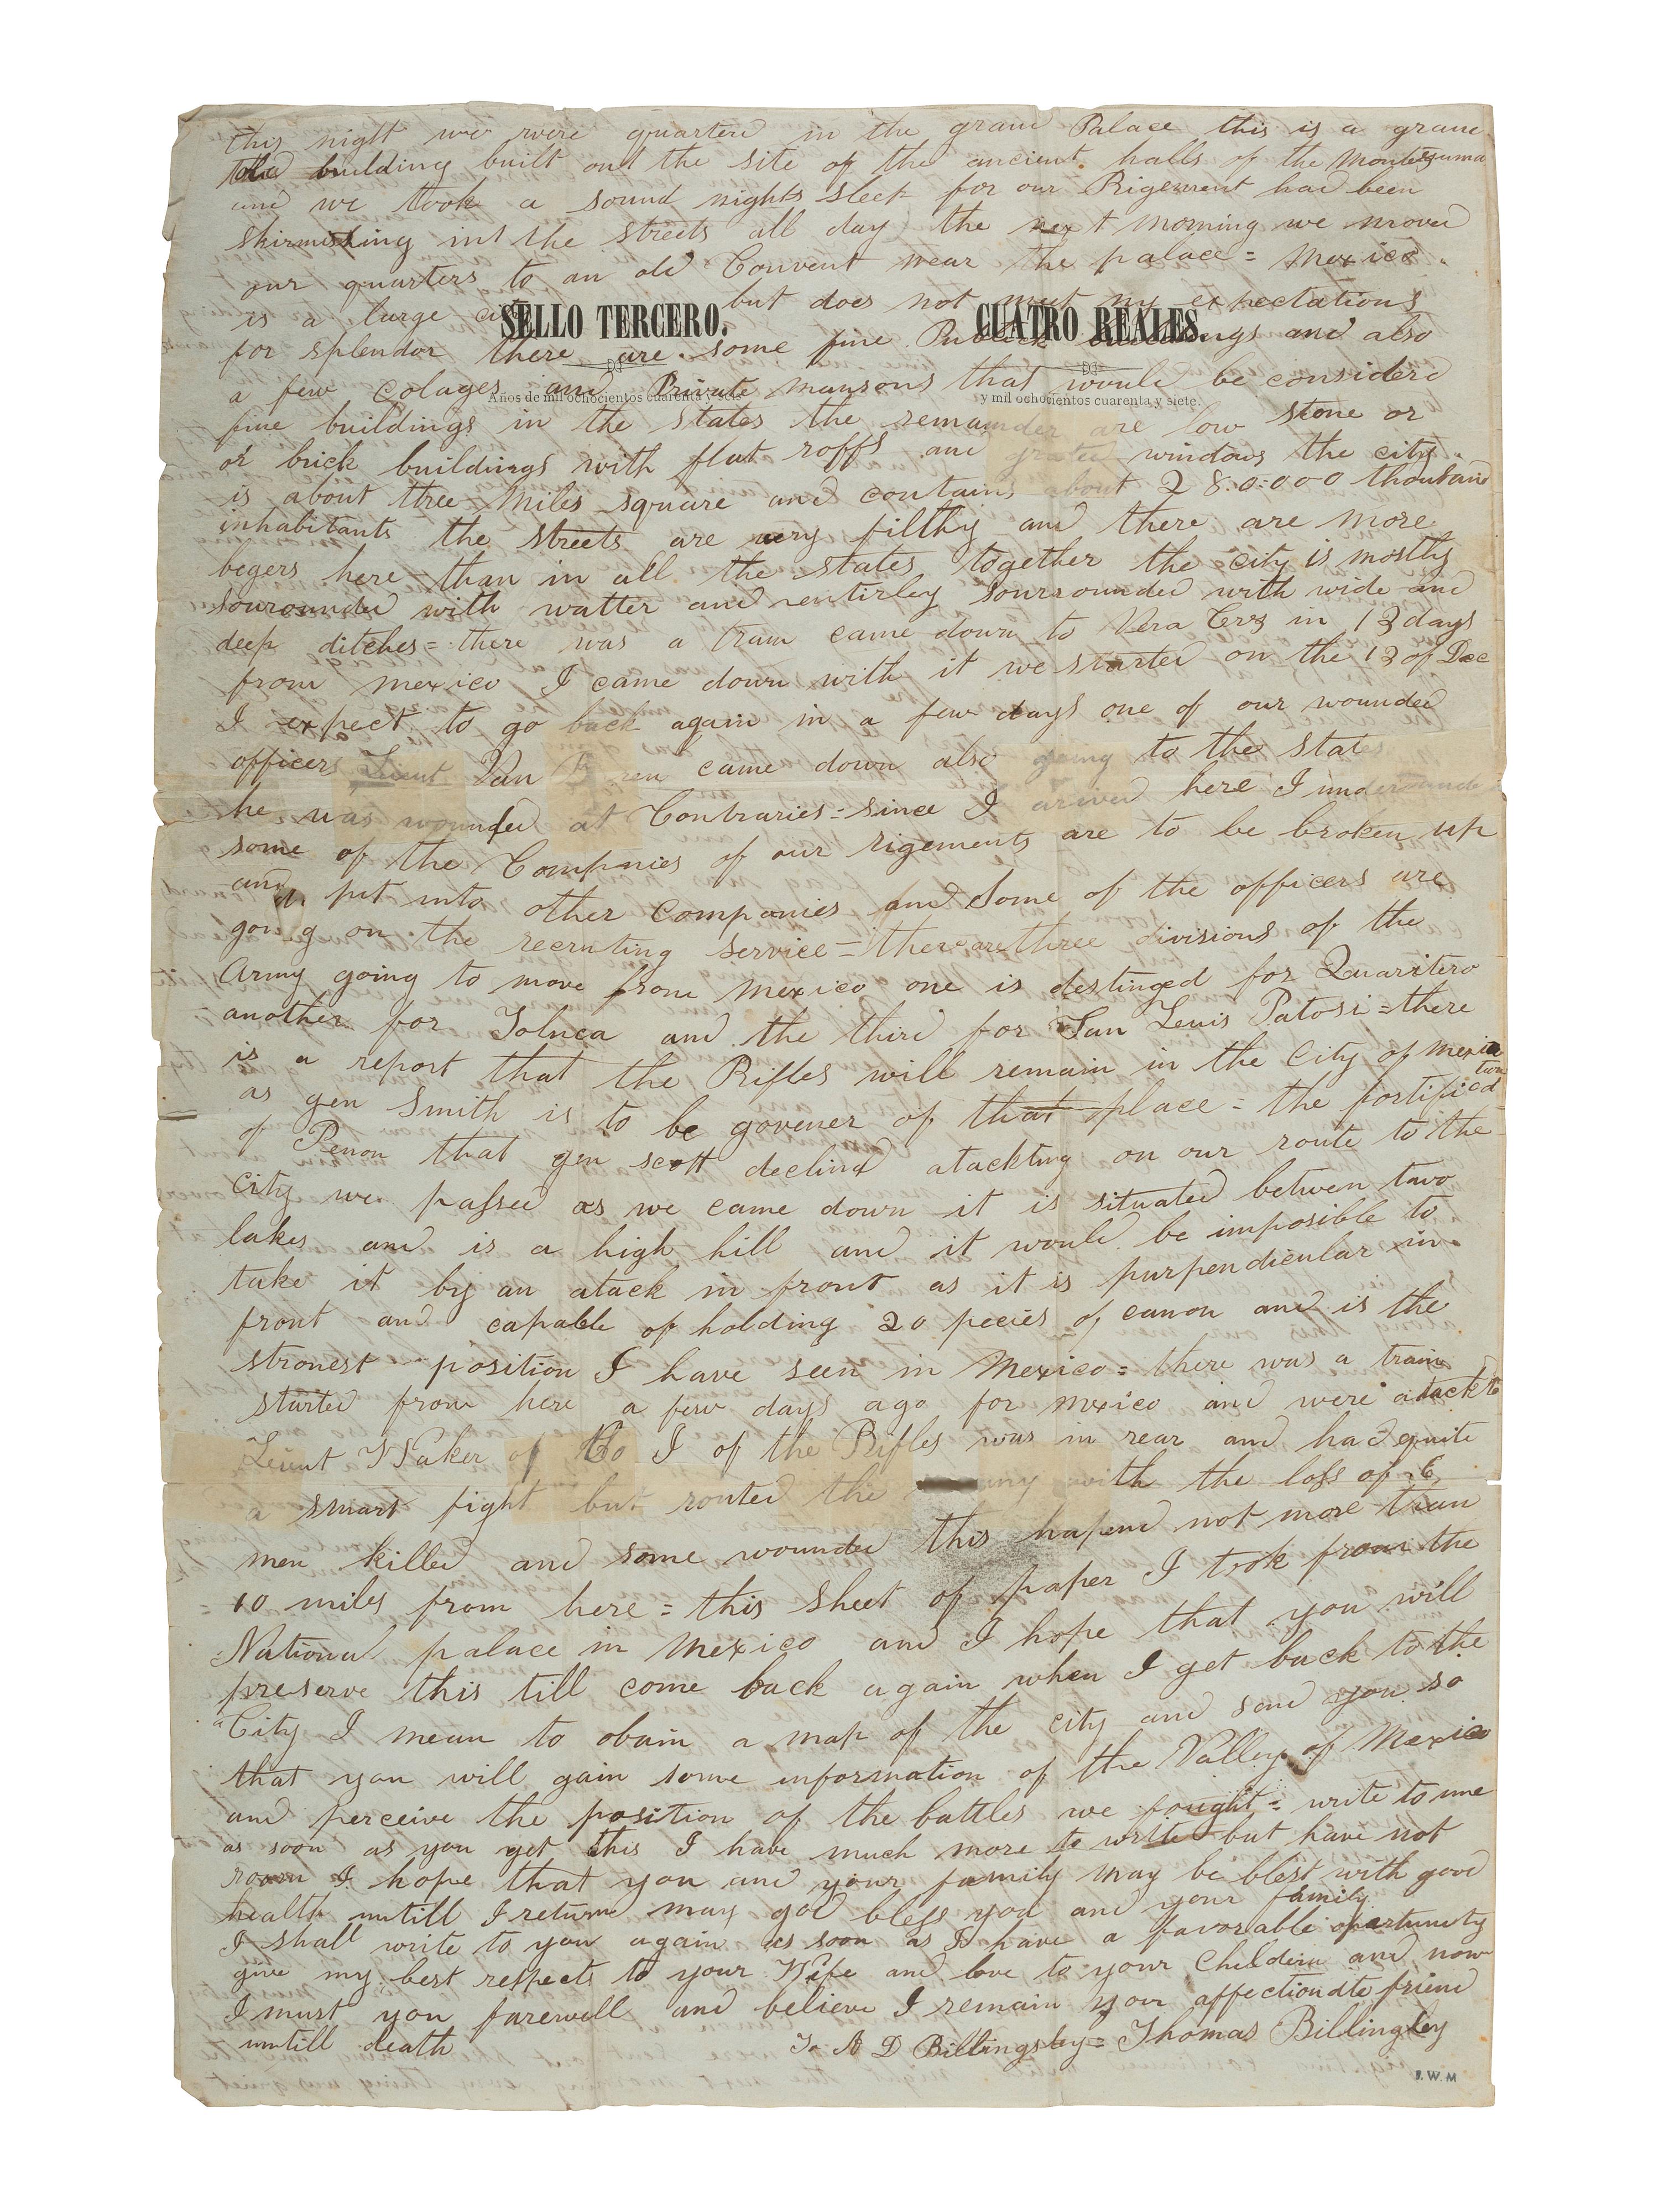 this night we were quarterd in the grand Palace this is a grand
old building built ont the site of the ancient halls of the Montezuma
and we took a sound nights sleep for our Rigement had been
skirmishing int the streets all day the next morning we moved
our quarters to an old Convent near the palace = Mexico
is a large city but does not meet my expectations
SELLO TERCERO. CUATRO REALES.
for splendor there are some fine Publick buildings and also
a few colages and Private mansons that would be considerd
Años de mil ochocientos cuarenta y seis y mil ochocientos cuarenta y siete.
fine buildings in the States the remainder are low stone or
or brick buildings with flat roffs and grated windows the city
is about three miles square and contains about 28.0.000 thousand
inhabitants the streets are very filthy and there are more
begers here than in all the states together the city is mostly
sourounded with watter and entirley sourrounded with wide and
deep ditches = there was a train came down to Vera Cruz in 13 days
from mexico I came down with it we started on the 13 of Dec
I expect to go back again in a few days one of our wounded
officers Lieut Van came down also going to the States
he was wounded at Contraries = since I arived here I understande
some of the Companies of our rigements are to be broken up
and put into other companies and some of the officers are
going on the recruting service = there are three divisions of the
Army going to move from mexico one is destinged for Quaritero
another for Toluca and the third for San Leuis Patosi = there
is a report that the Rifles will remain in the City of mexico
as gen Smith is to be govener of that place = the fortified town
of Penon that gen scott declind atackting on our route to the
city we passed as we came down it is situated betwen two
lakes and is a high hill and it would be imposible to
take it by an atack in front as it is purpendicular in
front and capable of holding 20 pecies of canon and is the
stronest position I have seen in Mexico = there was a train
started from here a few days ago for mexico and were atackt
Lieut Walker of Co I of the Rifles was in rear and had quite
a smart fight but routed the with the loss of 6
men killed and some wounded this hapend not more than
10 miles from here = this sheet of paper I took from the
National palace in Mexico and I hope that you will
preserve this till come back again when I get back to the
City I mean to obain a map of the city and send you so
that you will gain some information of the Valley of Mexico
and perceive the position of the battles we fought = write to me
as soon as you get this I have much more to write but have not
room I hope that you and your family may be blest with good
health untill I return may god bless you and your family
I shall write to you again as soon as I have a favorable opertunety
give my best respects to your Wife and love to your Childern and now
I must you farewell and believe I remain your affectionate friend
untill death To A D Billingsley = Thomas Billingsley
S.W.M